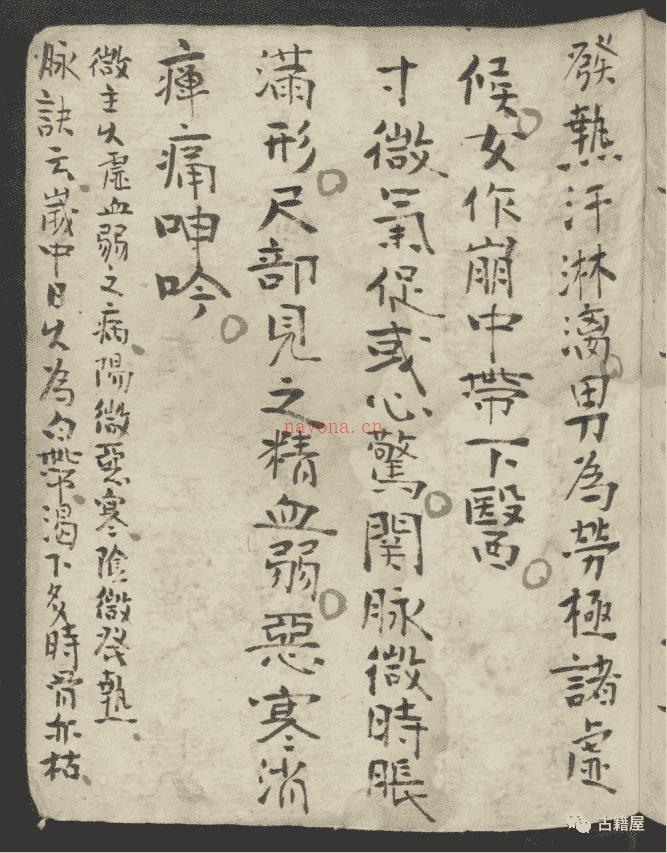 發熱汗淋漓男為勞極諸虛
候女作崩中帶下醫
寸微氣促或心驚関脉微時脹
滿形尺部見之精血弱惡寒消
痺痛呻吟
微主久虛血弱之病陽微惡寒陰微發熱
脉訣云崴中日久為白帶漏下多時骨亦枯
nayona.cn
古籍屋